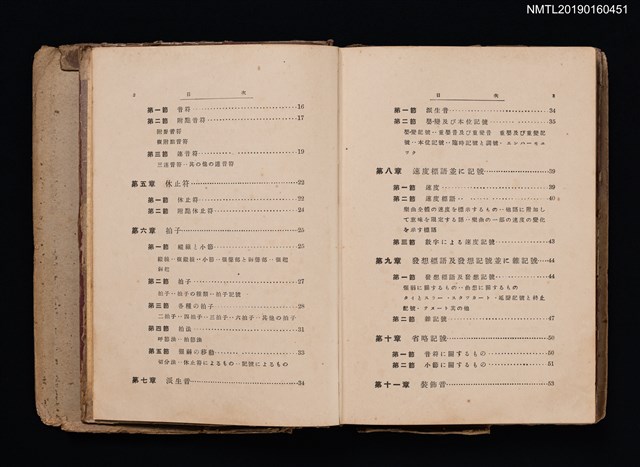 NMTL20190160451
2 目次
第一節 音符 16
第二節 附點音符 17
附點音符
複附點音符
第三節 連音符 19
三連音符—其の他の連音符
第五章 休止符 22
第一節 休止符 22
第二節 附點休止符 24
第六章 拍子 25
第一節 縱線と小節 25
第二節 拍子 27
拍子—拍子の種類—拍子記號
第三節 各種の拍子 28
二拍子—四拍子—三拍子—六拍子—其他の拍子
第四節 拍法 31
第五節 强弱の移動 33
切分法—休止符によるもの—記號によるもの
第七章 派生音 34
目次 3
第一節 派生音 34
第二節 嬰變及び本位記號 35
嬰變記號—重嬰音及び重變音
記號—本位記號—臨時記號と調號—エンハーモニ
ック
第八章 速度標語並に記號 39
第一節 速度 39
第二節 速度標語 40
樂曲全體の速度を標示するもの—種語に附加し
て意味を限定する語—樂曲の一部の速度の變化
を示す標語
第三節 數字による速度記號 43
第九章 發想標語及發想記號並に雜記號 44
第一節 發想標語及發想記號 44
强弱に關するもの—曲想に關するもの
タイとスラー・スタッカート・延聲記號と終止
記號・テヌート其の他
第二節 雜記號 47
第十章 省略記號 50
第一節 音符に關するもの 50
第二節 小節に關するもの 51
第十一章 裝飾音 53